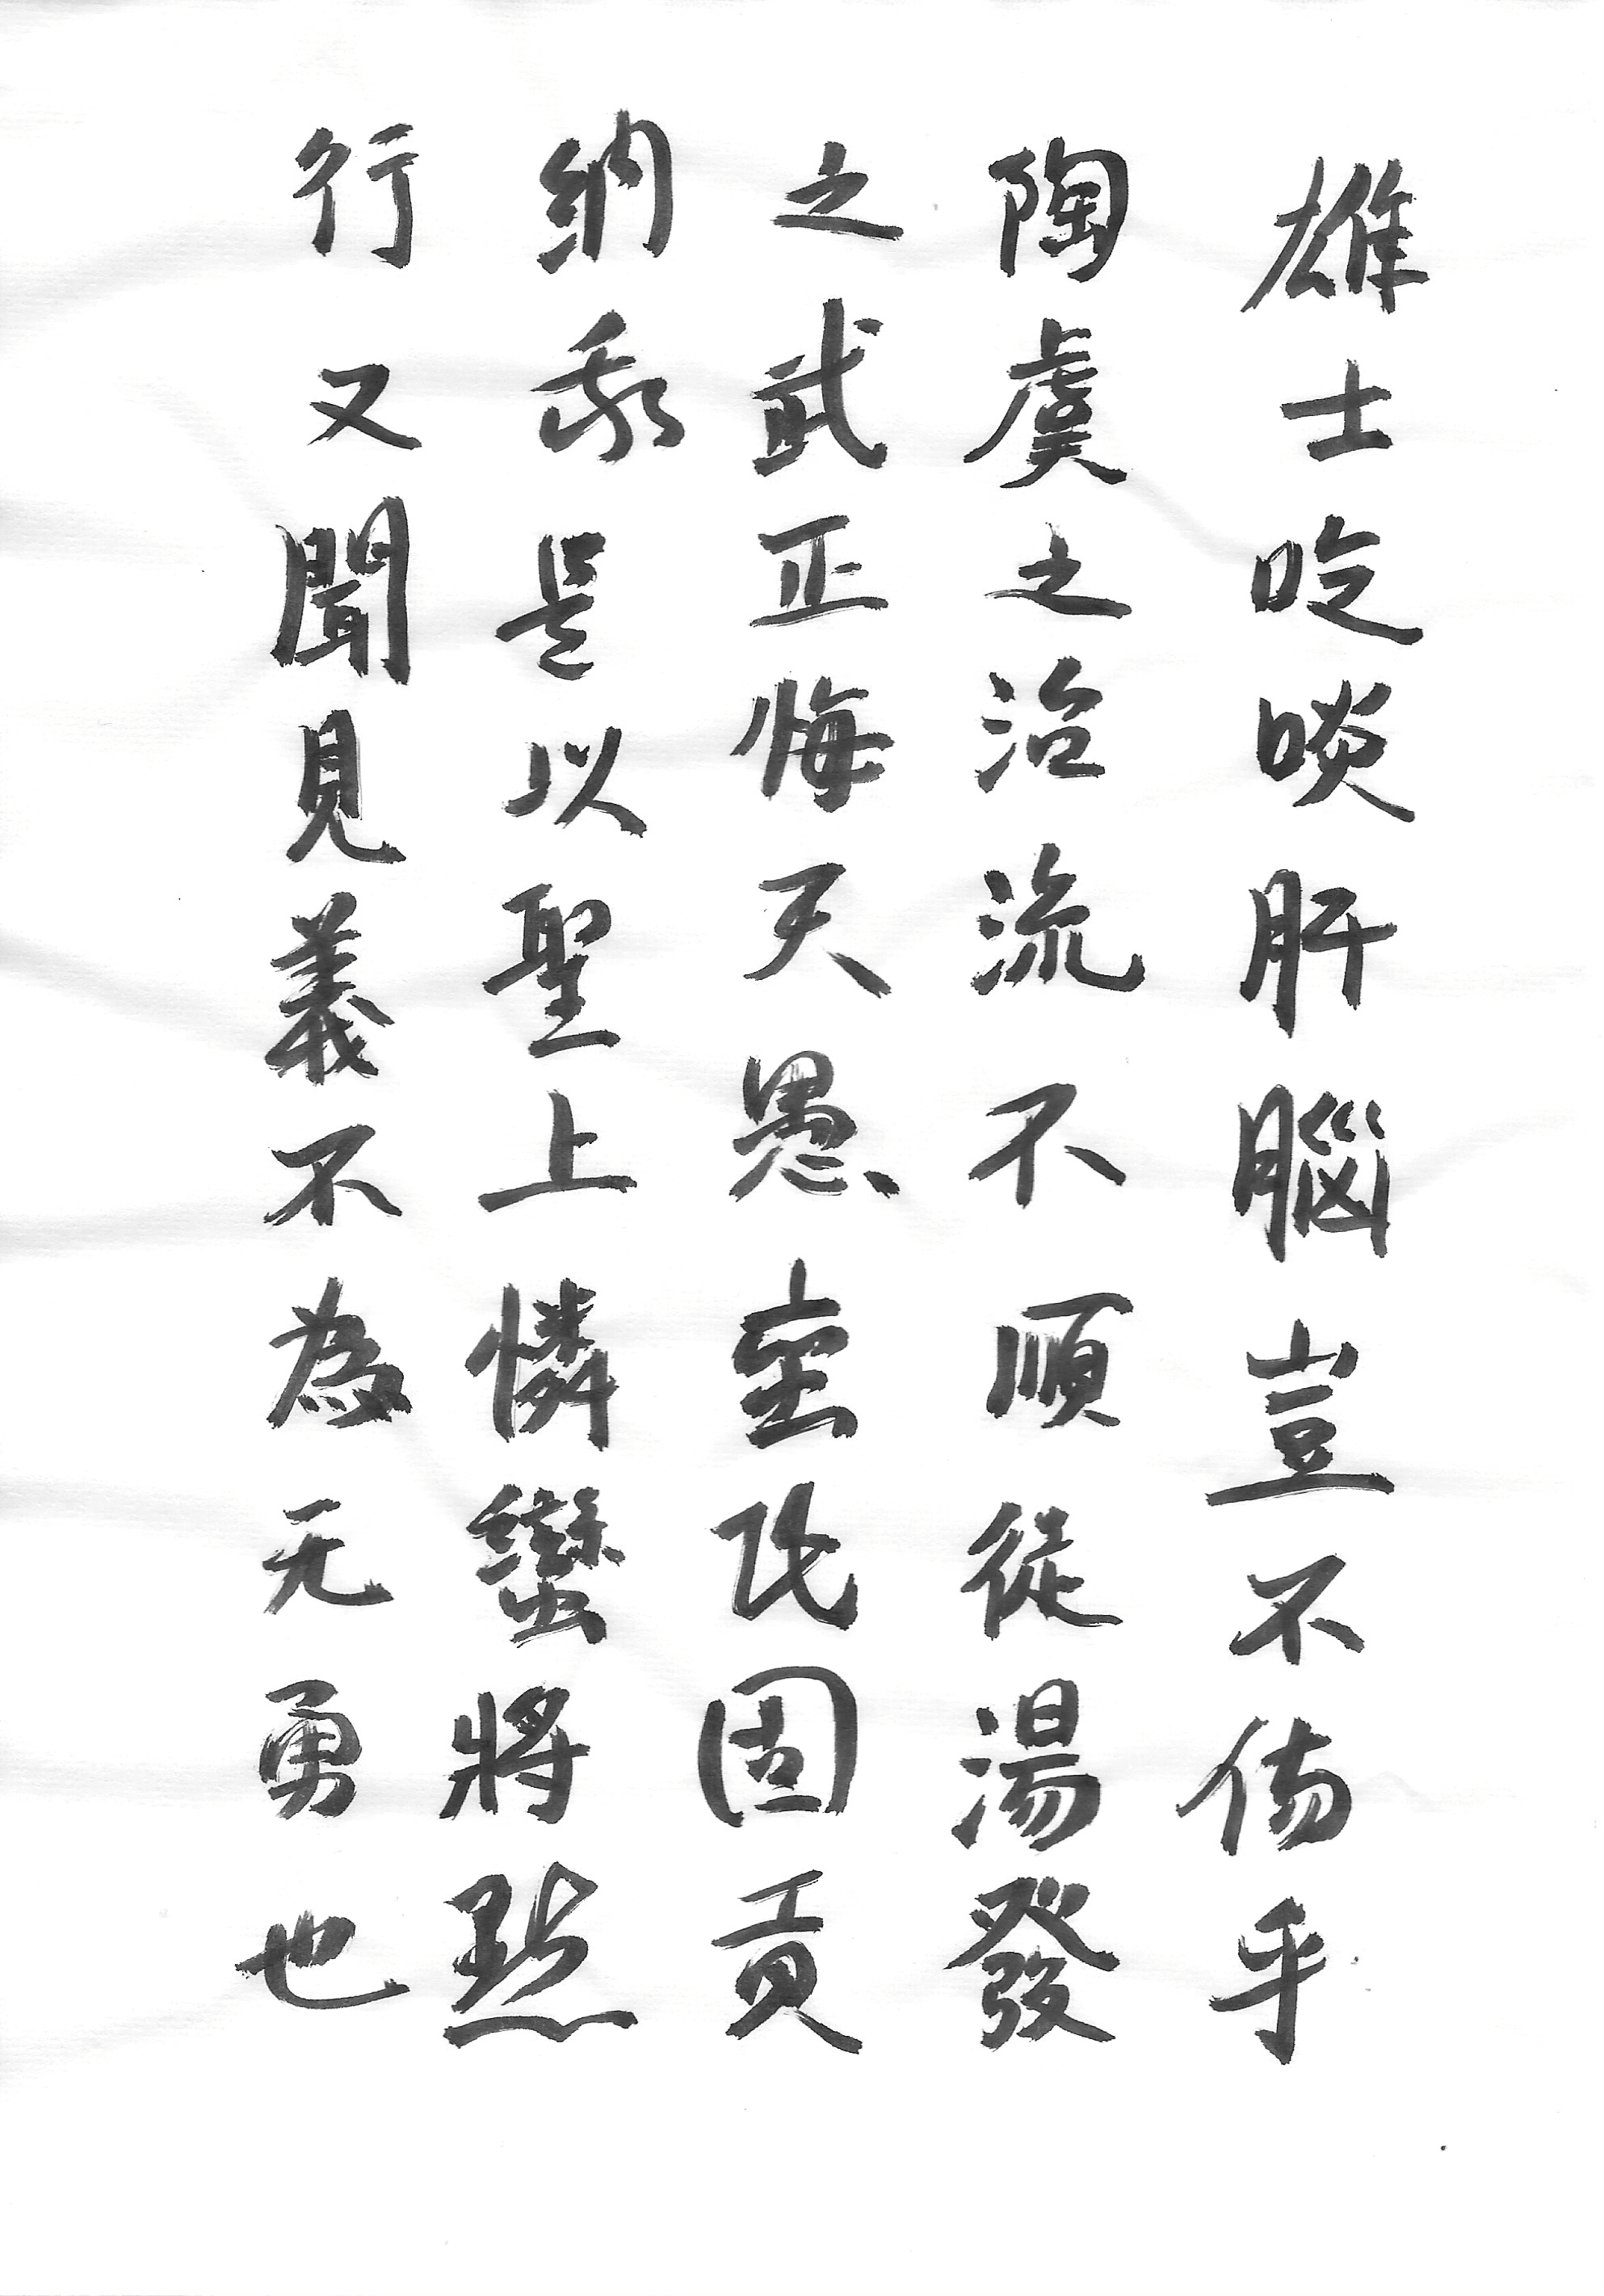 雄士吃啖肝腦豈不傷乎
陶虞之治流不順從湯發
之武正悔天愚固貢
納是以聖上憐蠻將
行又聞見義不為无勇也